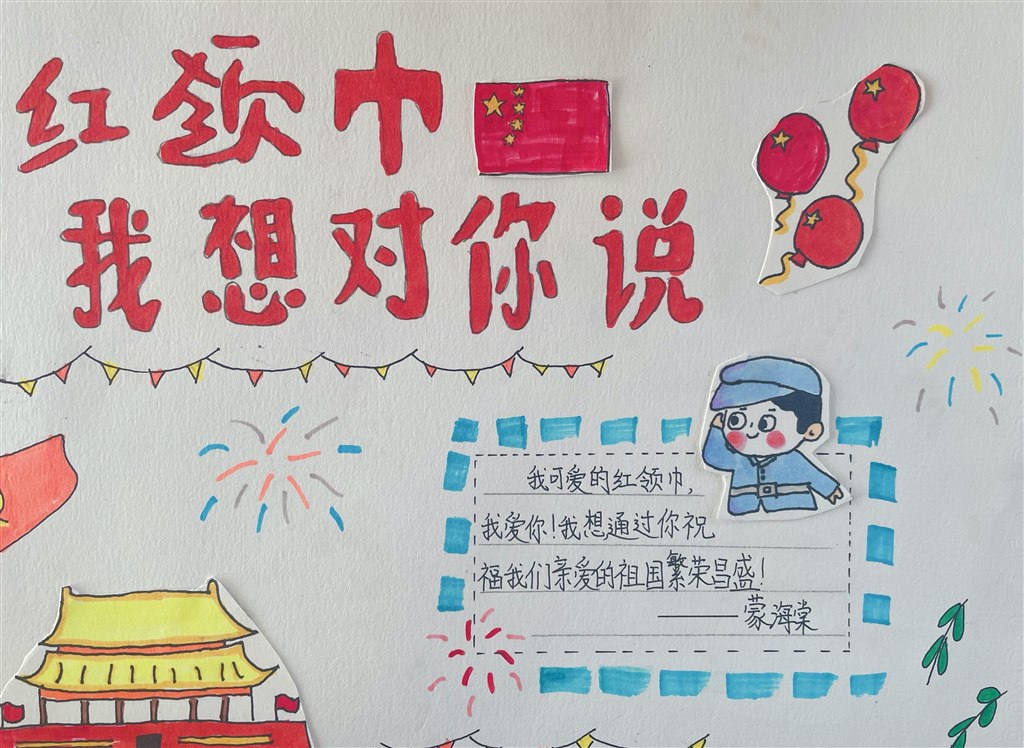 红领巾
我想对你说
我可爱的红领巾，
我爱你！我想通过你祝
福我们亲爱的祖国繁荣昌盛！
——蒙海棠